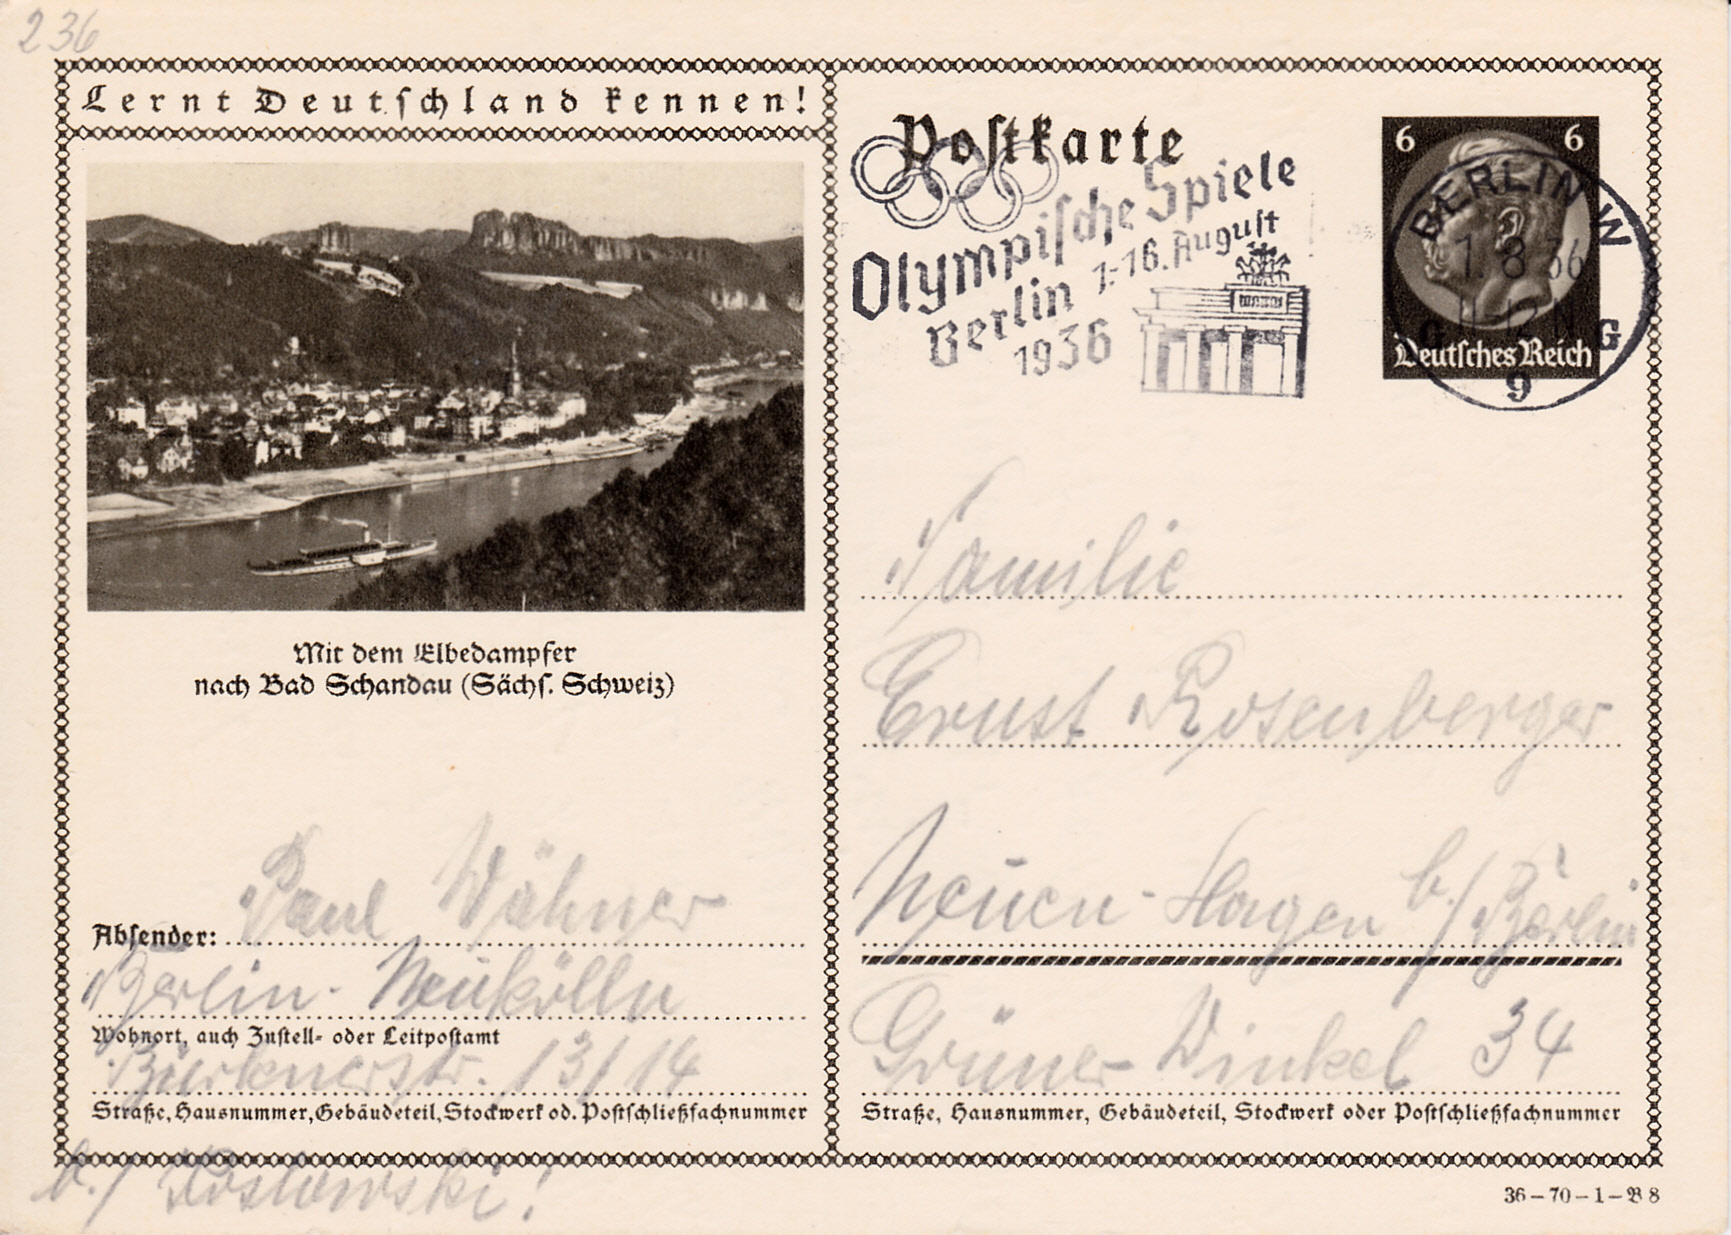 236
Lernt Deutschland kennen!
Mit dem Elbedampfer
nach Bad Schandau (Sächs. Schweiz)
Absender: Paul Wähner
Berlin-Neukölln
Wohnort, auch Zustell- oder Leitpostamt
Bürknerstr. 13/14
Straße, Hausnummer, Gebäudeteil, Stockwerk od. Postschließfachnummer
b./
Postkarte
Olympische Spiele
Berlin 1.-16. August
1936
6 6
Deutsches Reich
BERLIN W
1.8.36
11-12 N
G G
9
Familie
Ernst Rosenberger
Neuen-Hagen b./Berlin
Grüner-Winkel 34
Straße, Hausnummer, Gebäudeteil, Stockwerk oder Postschließfachnummer
36-70-1-B8